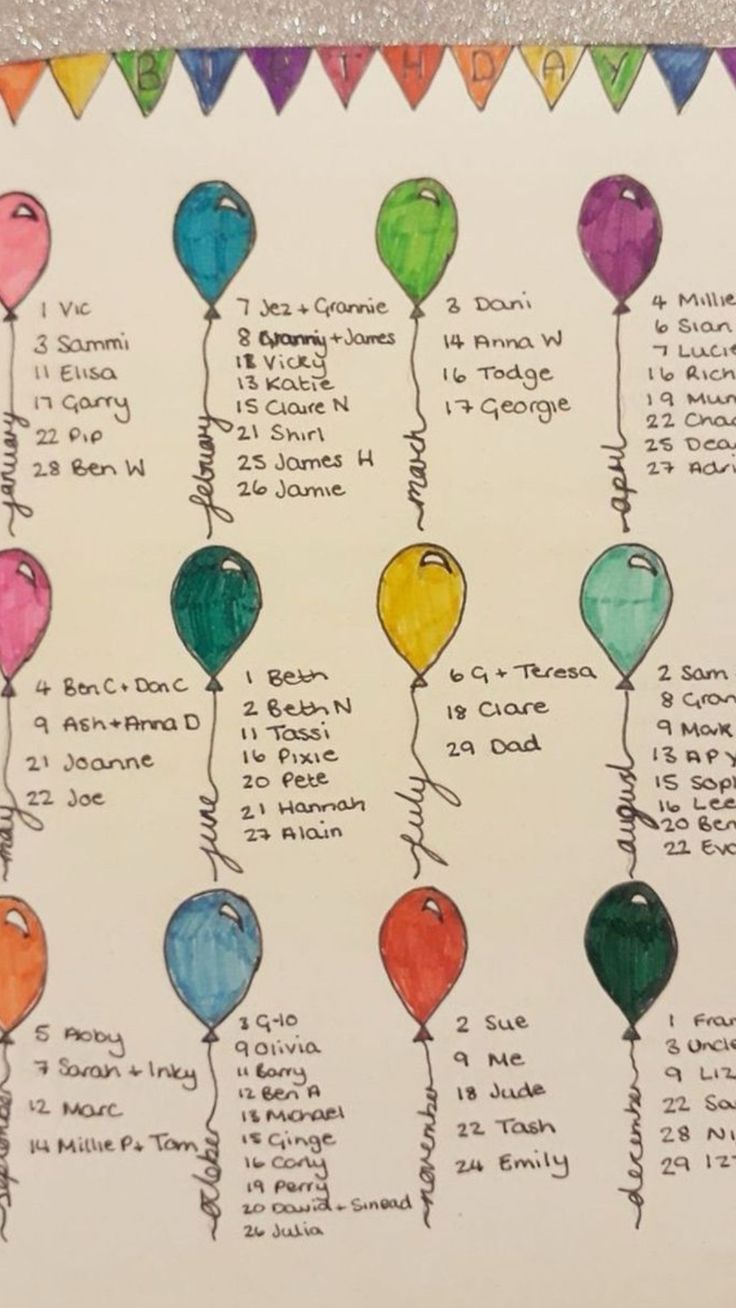 BIRTHDAY
january
1 Vic
3 Sammi
11 Elisa
17 Garry
22 Pip
28 Ben W
february
7 Jez + Grannie
8 Granny + James
Vicky
13 Katie
15 Claire N
21 Shirl
25 James H
26 Jamie
march
3 Dani
14 Anna W
16 Todge
17 Georgie
april
4 Millie
6 Sian
7 Lucie
16 Rich
19 Mum
22
25
27
may
4 Ben C + Don C
9 Ash + Anna D
21 Joanne
22 Joe
june
1 Beth
2 Beth N
11 Tassi
16 Pixie
20 Pete
21 Hannah
27 Alain
july
6 G + Teresa
18 Clare
29 Dad
august
2 Sam
8
9 Mark
13
15
16 Lee
20 Ben
22
september
5 Abby
7 Sarah + Inky
12 Marc
14 Millie P + Tom
october
3 G-10
9 Olivia
11 Barry
12 Ben A
13 Michael
15 Ginge
16 Carly
19 Perry
20 David + Sinead
26 Julia
november
2 Sue
9 Me
18 Jude
22 Tash
24 Emily
december
1
3 Uncle
9
22
28
29